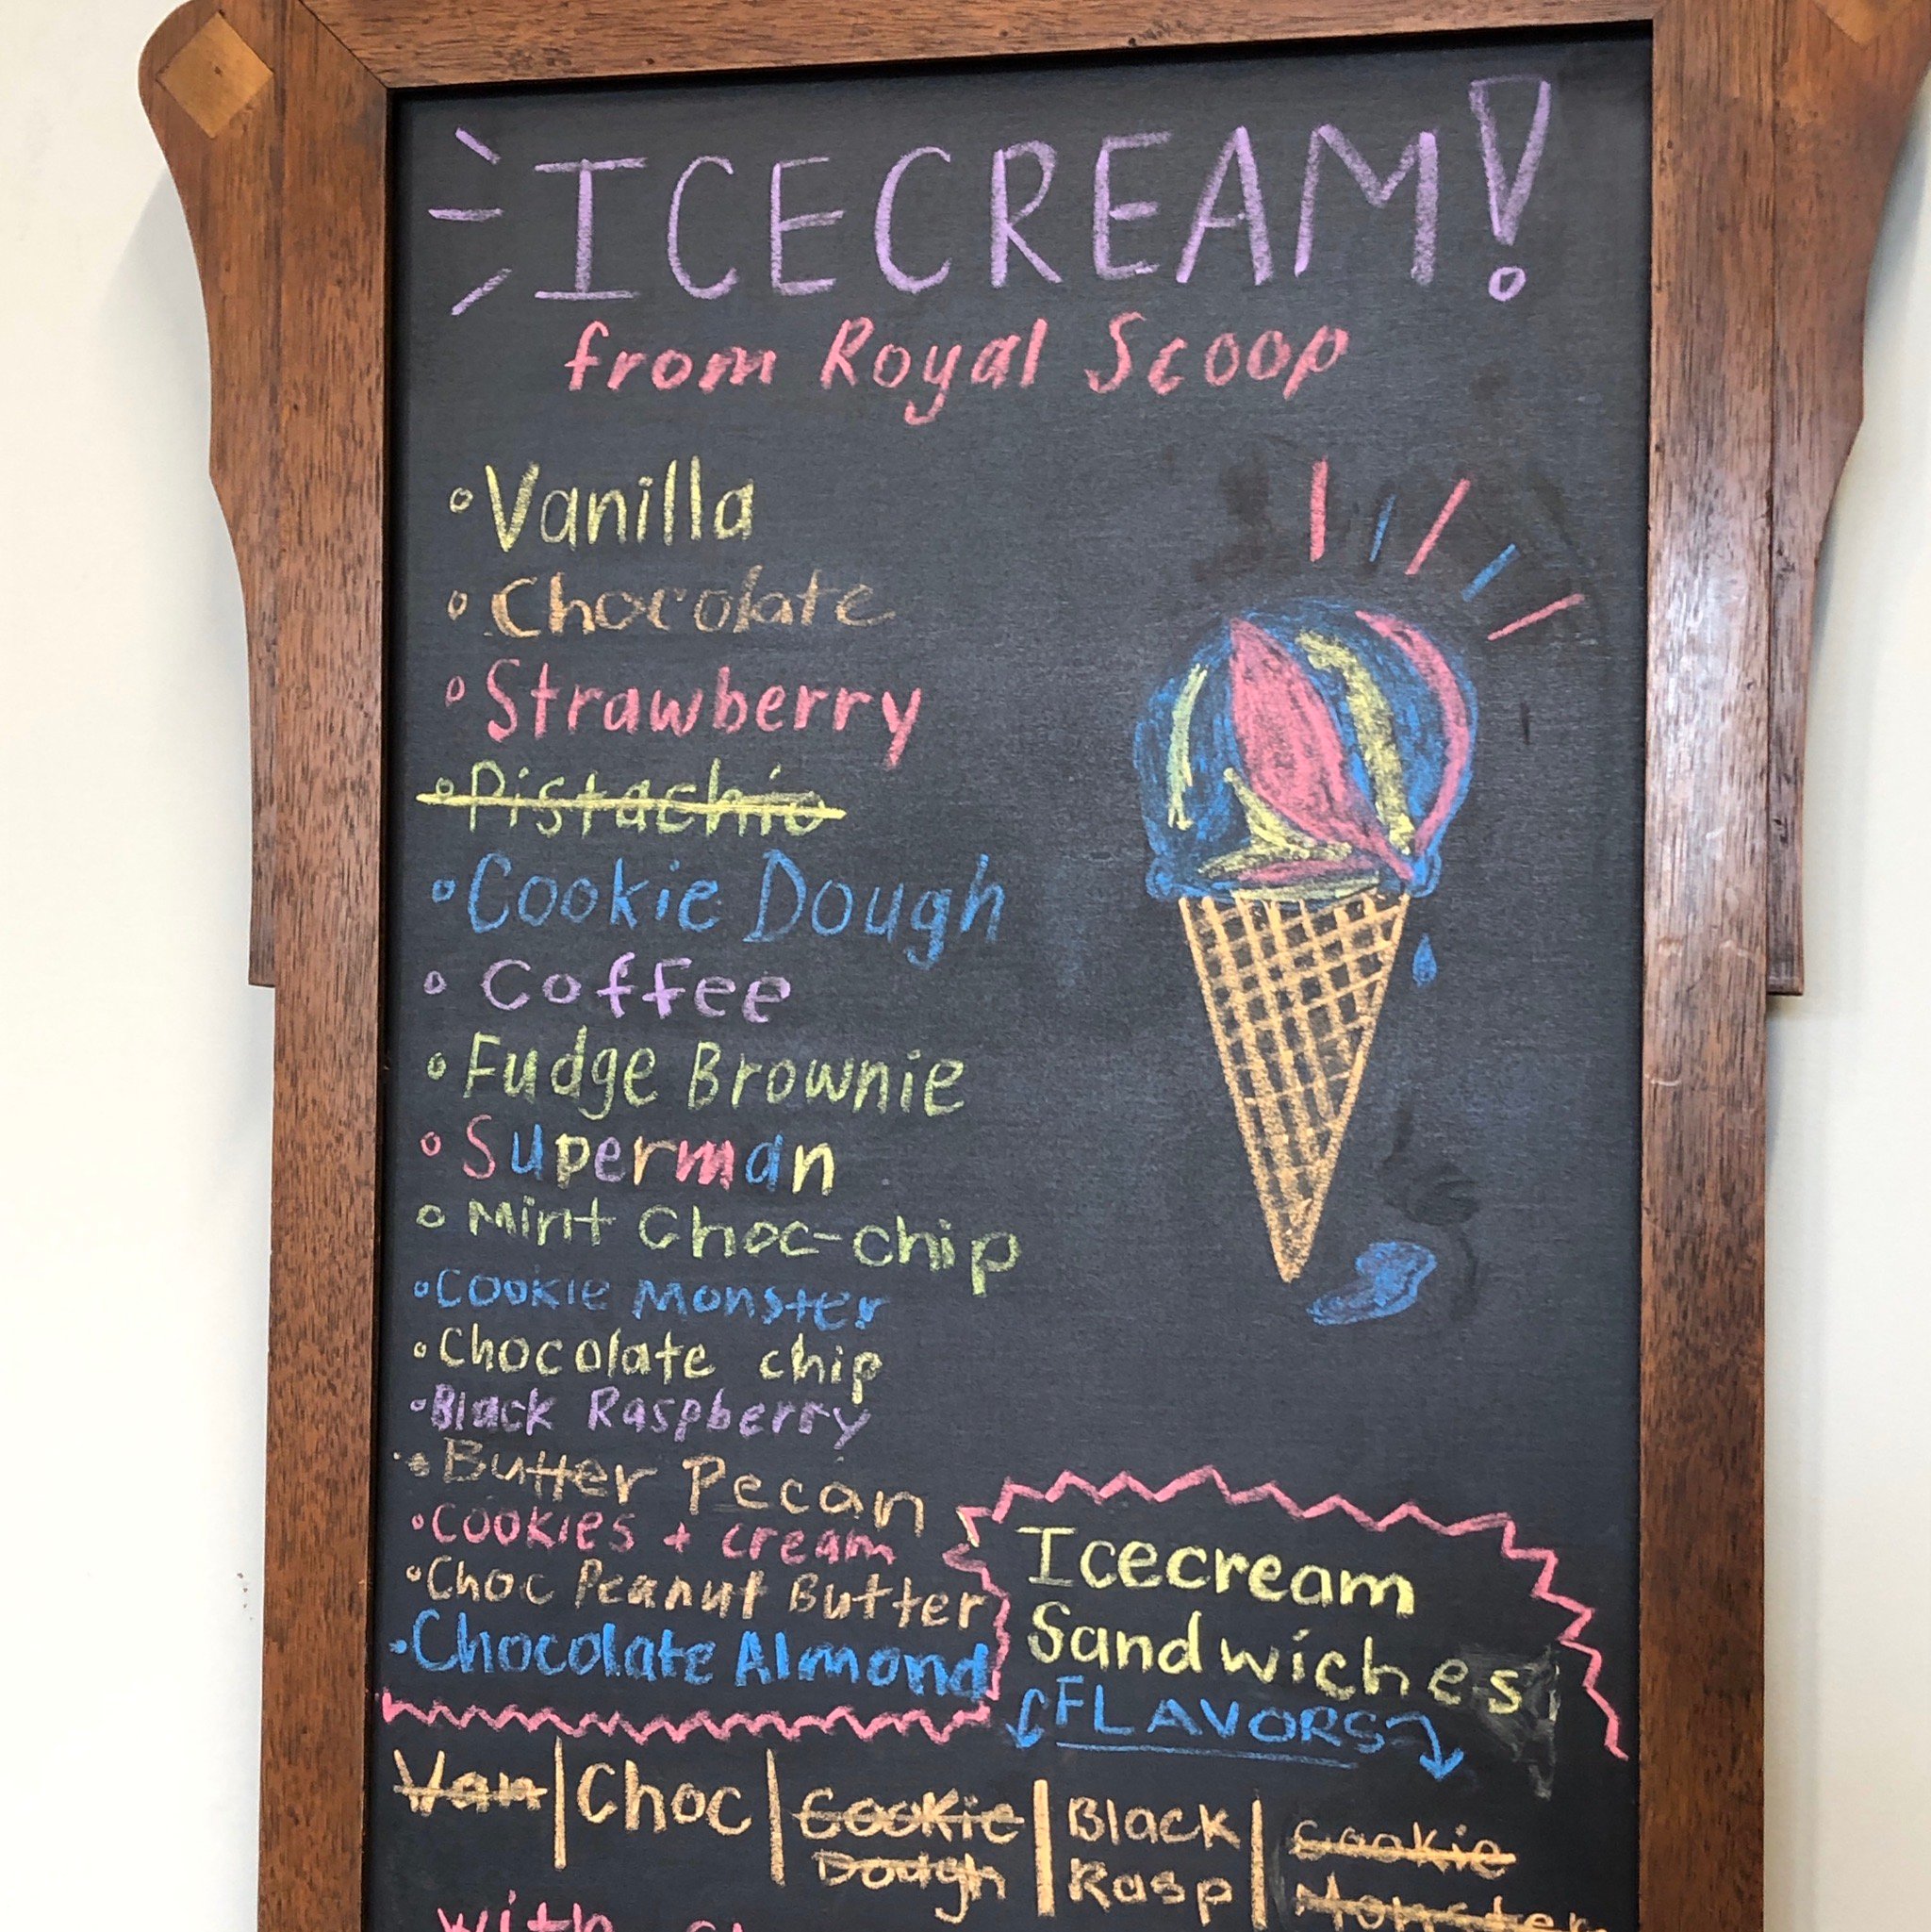 ICECREAM!
from Royal Scoop
Vanilla
Chocolate
Strawberry
Pistachio
Cookie Dough
Coffee
Fudge Brownie
Superman
Mint Choc-chip
Cookie Monster
Chocolate chip
Black Raspberry
Butter Pecan
Cookies + cream
Choc Peanut Butter
Chocolate Almond
Icecream
Sandwiches
FLAVORS
Van | Choc | Cookie | Black | Cookie
Dough Rasp Monster
with